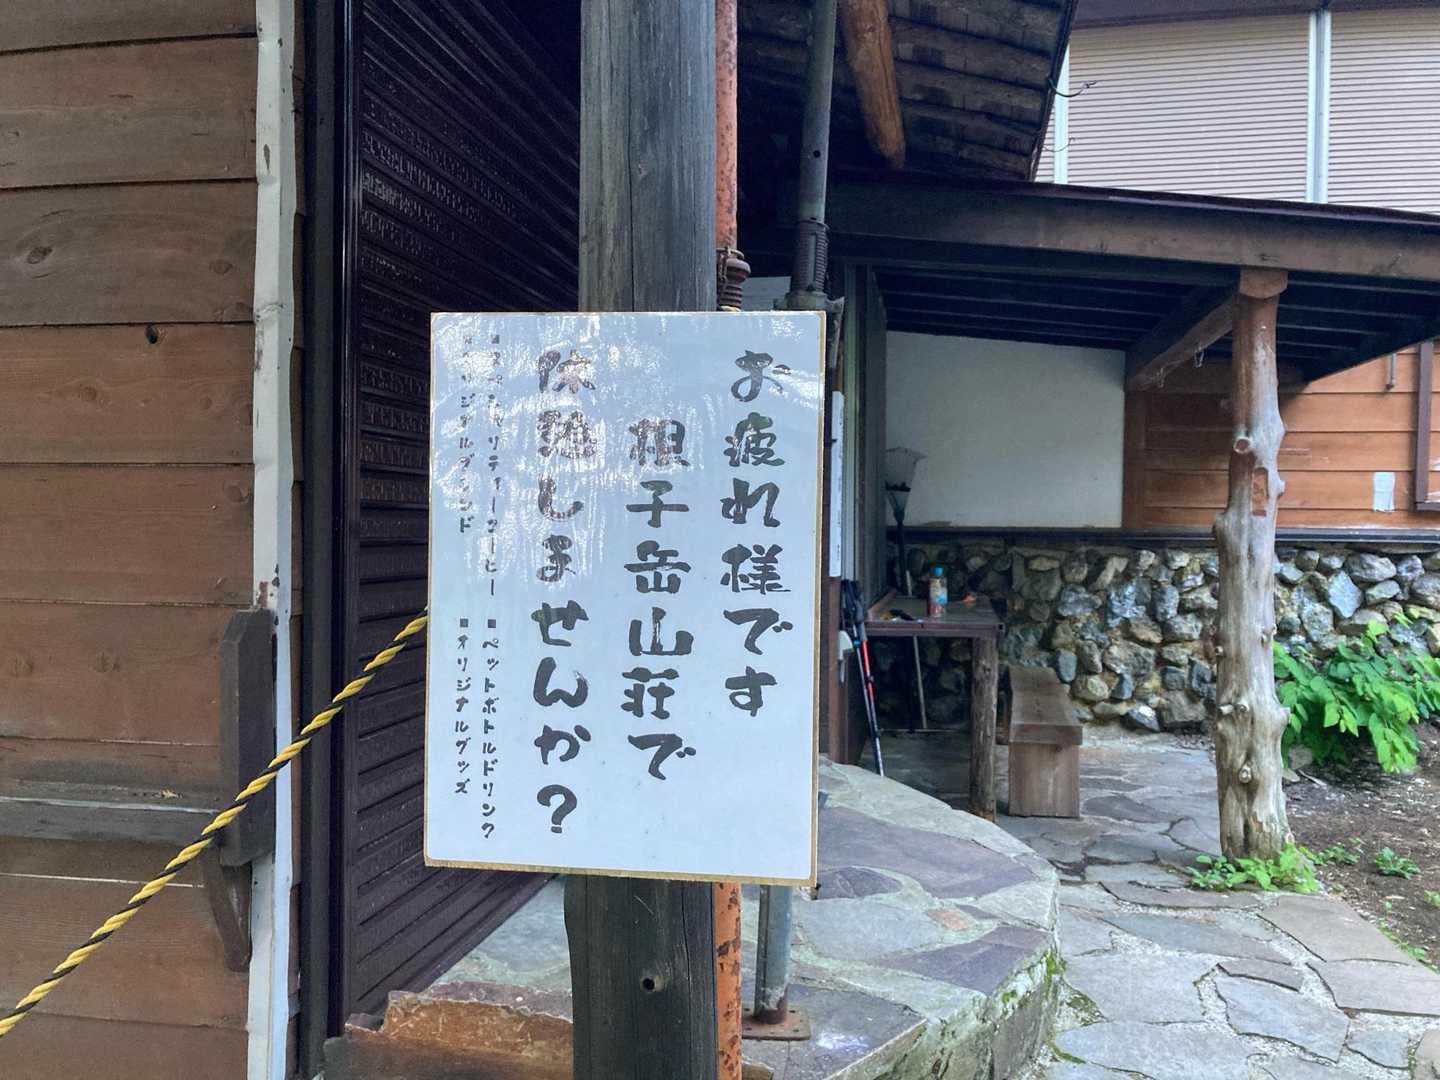 お疲れ様です
根子岳山荘で
休憩しませんか？
■スペシャリティーコーヒー
■ペットボトルドリンク
■オリジナルブレンド
■オリジナルグッズ